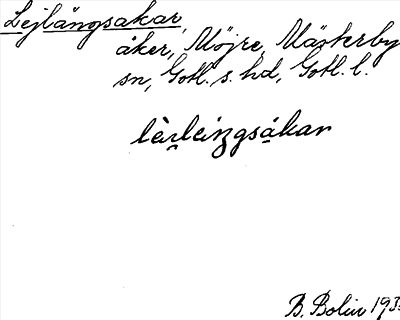 Lejlängsakar
åker, Möjre, Mästerby
sn, Gotl. s. hd, Gotl. l.
B. Bolin 193